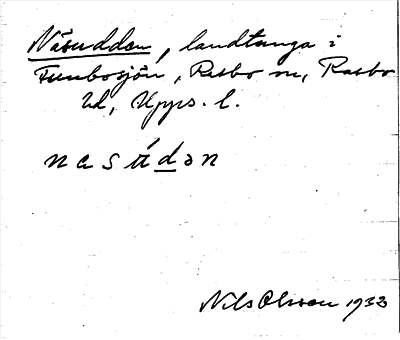 Näsudden, landtunga i
Funbosjön, Rasbo sn, Rasbo
hd, Upps. l.
nasúdən
Nils Olsson 1933